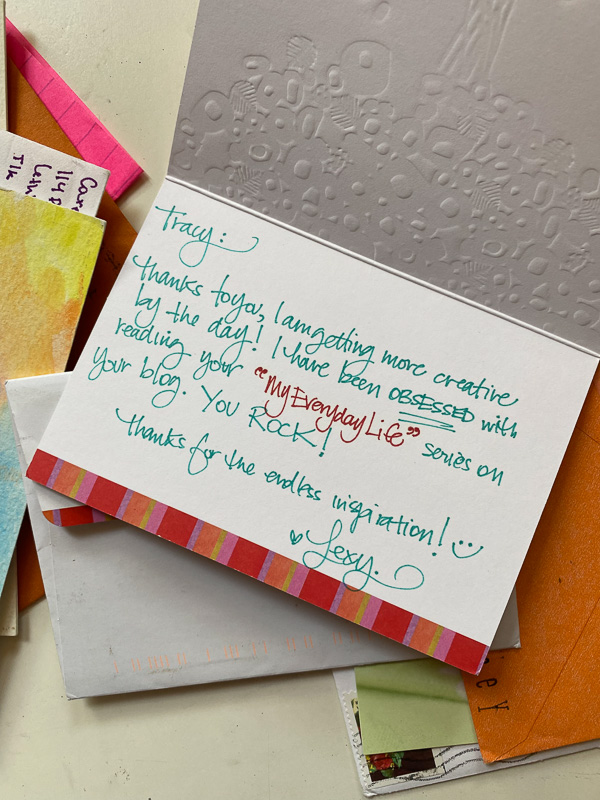 Tracy:
thanks to you, I am getting more creative
by the day! I have been OBSESSED with
reading your "My Everyday Life" series on
your blog. You ROCK!
Thanks for the endless inspiration!
Lesy.
114